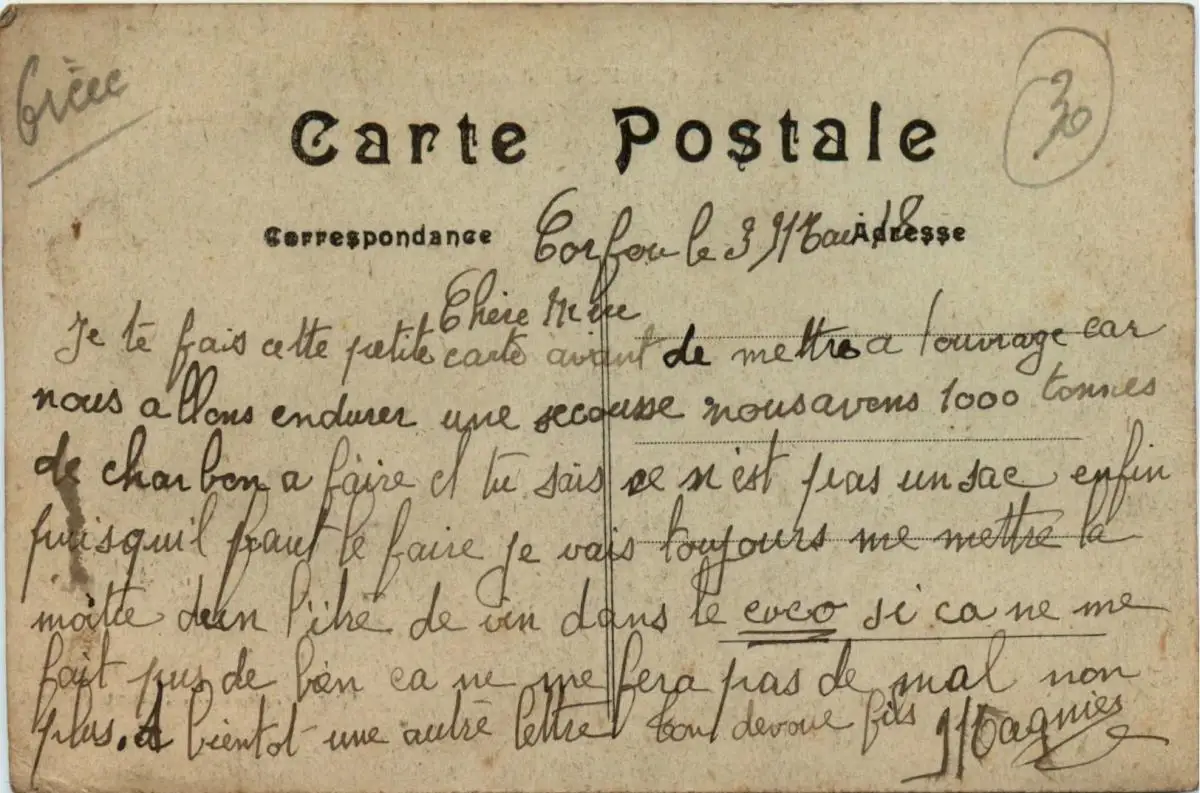 Grèce
30
Carte Postale
Correspondance
Adresse
Corfou le 3 Mai 18
Chère Mère
Je te fais cette petite carte avant de mettre a l'ouvrage car
nous allons endurer une secousse nous avons 1000 tonnes
de charbon a faire et tu sais ce n'est pas un sac enfin
puisqu'il faut le faire je vais toujours me mettre la
moitie d'un litre de vin dans le coco si ca ne me
fait pas de bien ca ne me fera pas de mal non
plus. A bientot une autre lettre ton devoue fils Magniés